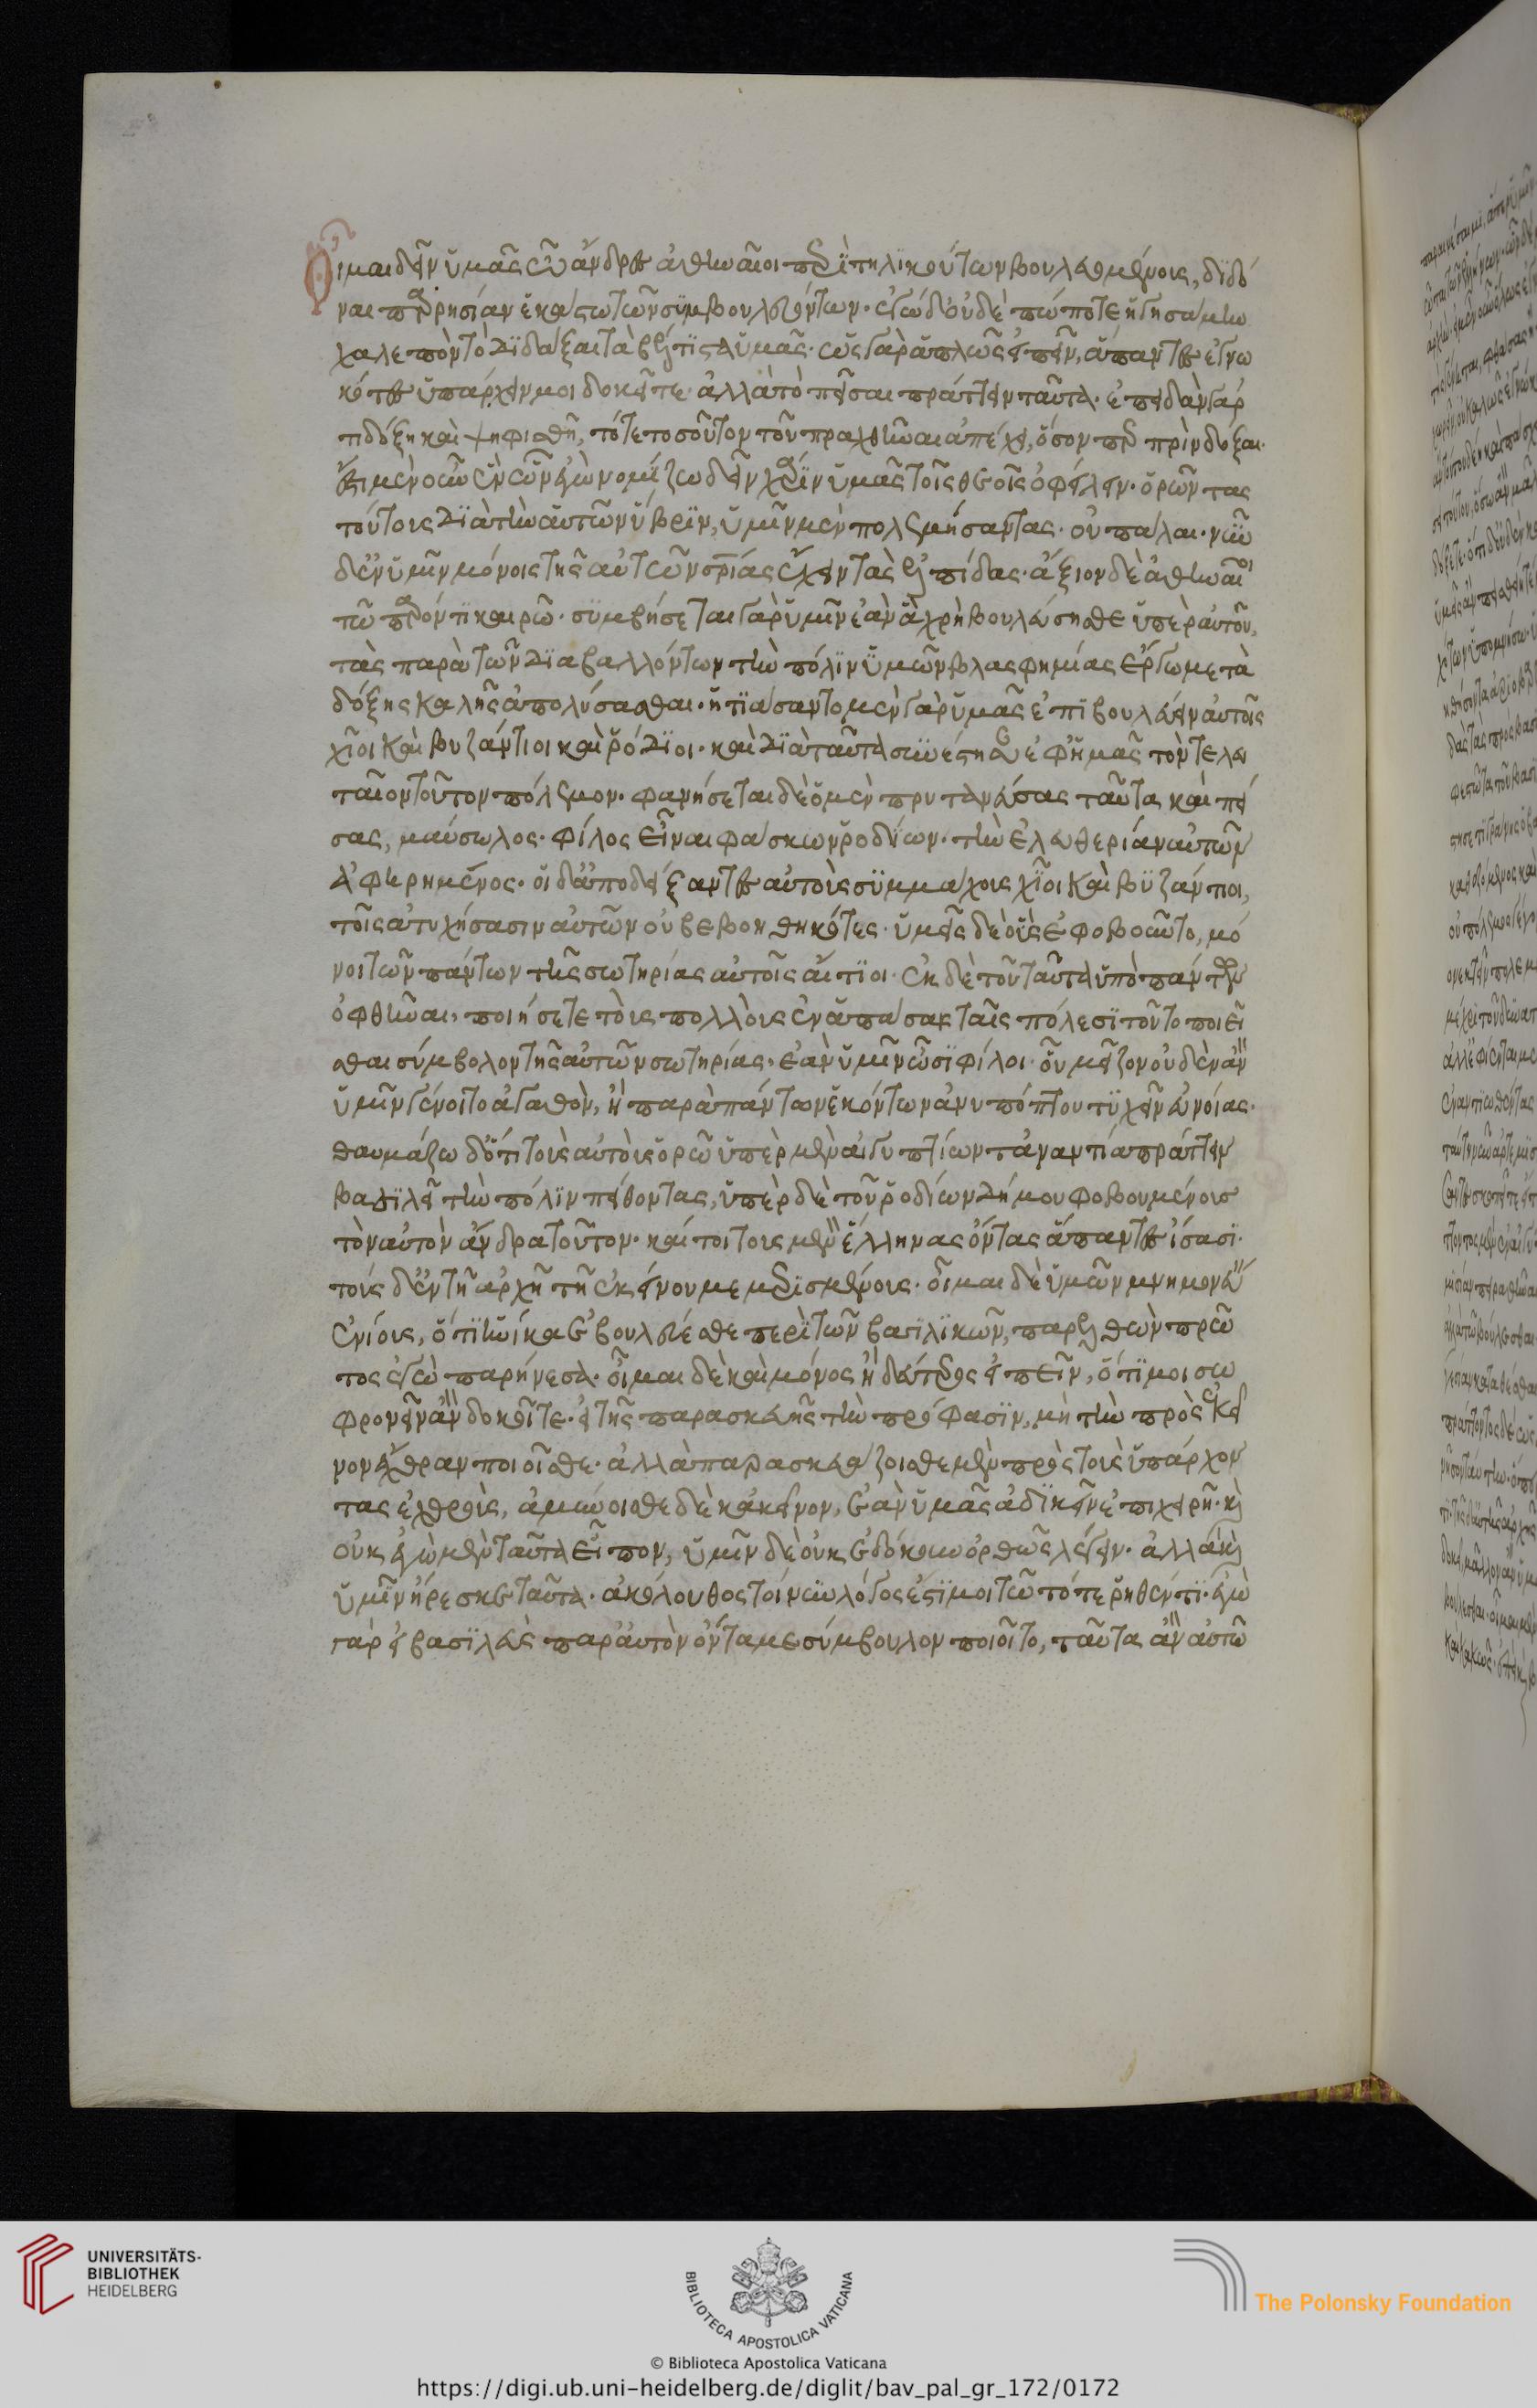 Οἶμαι δεῖν ὑμᾶς ὦ ἄνδρες ἀθηναῖοι περὶ τηλικούτων βουλευομένους, διδό
ναι παρρησίαν ἑκάστω τῶν συμβουλευόντων· ἐγὼ δ' οὐδὲ πώποτε ἡγησάμην
χαλεπὸν τὸ διδάξαι τὰ βέλτιστα ὑμᾶς· ὡς γὰρ ἁπλῶς εἰπεῖν, ἅπαντες ἐγνω
κότες ὑπάρχειν μοι δοκεῖτε· ἀλλὰ τὸ πεῖσαι πράττειν ταῦτα· ἐπειδὰν γάρ
τι δόξη καὶ ψηφισθῆ, τότε τοσοῦτον τοῦ πραχθῆναι ἀπέχει, ὅσον περ πρὶν δόξαι·
ἔστι μὲν οὖν ἓν ὧν ἐγὼ νομίζω δεῖν χάριν ὑμᾶς τοῖς θεοῖς ὀφείλειν· ὁρῶν τας
τούτους διὰ τὴν αὐτῶν ὕβριν, ὑμῖν μὲν πολεμήσαντας· οὐ πάλαι· νῦν
δ' ἐν ὑμῖν μόνοις τῆς αὐτῶν σρίας ἔχειν τὰς ἐλπίδας· ἄξιον δὲ ἀθηναῖοι
τῶ παρόντι καιρῶ· συμβήσεται γὰρ ὑμῖν ἐὰν ἃ χρὴ βουλεύσησθε ὑπὲρ αὐτοῦ,
τὰς παρὰ τῶν διαβαλλόντων τὴν πόλιν ὑμῶν βλασφημίας ἔργω μετὰ
δόξης καλῆς ἀπολύσασθαι· ἠτιάσαντο μὲν γὰρ ὑμᾶς ἐπιβουλεύειν αὐτοῖς
χῖοι καὶ βυζάντιοι καὶ ῥόδιοι· καὶ διὰ ταῦτα συνέστησαν ἐφ' ἡμᾶς τὸν τελευ
ταῖον τοῦτον πόλεμον· φανήσεται δὲ ὁ μὲν πρυτανεύσας ταῦτα καὶ πεί
σας, μαύσωλος· φίλος εἶναι φάσκων ῥοδίων· τὴν ἐλευθερίαν αὐτῶν
ἀφηρημένος· οἱ δ' ἀποδείξαντες αὐτοὺς συμμάχους χῖοι καὶ βυζάντιοι,
τοῖς ἀτυχήσασιν αὐτῶν οὐ βεβοηθηκότες· ὑμεῖς δὲ οὓς ἐφοβοῦντο, μό
νοι τῶν πάντων τῆς σωτηρίας αὐτοῖς αἴτιοι· ἐκ δὲ τοῦ ταῦτα ὑπὸ πάντων
ὀφθῆναι, ποιήσετε τοὺς πολλοὺς ἐν ἁπάσαις ταῖς πόλεσι τοῦτο ποιεῖ
σθαι σύμβολον τῆς αὐτῶν σωτηρίας· ἐὰν ὑμῖν ὦσι φίλοι· οὗ μεῖζον οὐδὲν ἂν
ὑμῖν γένοιτο ἀγαθὸν, ἢ παρὰ πάντων ἑκόντων ἀνυπόπτου τυχεῖν εὐνοίας·
θαυμάζω δ' ὅτι τοὺς αὐτοὺς ὁρῶ ὑπὲρ μὲν αἰγυπτίων τἀναντία πράττειν
βασιλεῖ τὴν πόλιν πείθοντας, ὑπὲρ δὲ τοῦ ῥοδίων δήμου φοβουμένους
τὸν αὐτὸν ἄνδρα τοῦτον· καίτοι τοὺς μὲν ἕλληνας ὄντας ἅπαντες ἴσασι·
τοὺς δ' ἐν τῆ ἀρχῆ τῆ ἐκείνου μεμερισμένους· οἶμαι δὲ ὑμῶν μνημονεύειν
ἐνίους, ὅτι ἡνίκα ἐβουλεύεσθε περὶ τῶν βασιλικῶν, παρελθὼν πρῶ
τος ἐγὼ παρήνεσα· οἶμαι δὲ καὶ μόνος ἢ δεύτερος εἰπεῖν, ὅτι μοι σω
φρονεῖν ἂν δοκοῖτε· εἰ τῆς παρασκευῆς τὴν πρόφασιν, μὴ τὴν πρὸς ἐκεῖ
νον ἔχθραν ποιοῖσθε· ἀλλὰ παρασκευάζοισθε μὲν πρὸς τοὺς ὑπάρχον
τας ἐχθροὺς, ἀμύνοισθε δὲ κἀκεῖνον, ἐὰν ὑμᾶς ἀδικεῖν ἐπιχειρῆ· καὶ
οὐκ ἐγὼ μὲν ταῦτα εἶπον, ὑμῖν δὲ οὐκ ἐδόκουν ὀρθῶς λέγειν· ἀλλὰ καὶ
ὑμῖν ἤρεσκε ταῦτα· ἀκόλουθος τοίνυν λόγος ἐστί μοι τῶ τότε ῥηθέντι· ἐγὼ
γὰρ εἰ βασιλεὺς παρ' αὑτὸν ὄντα με σύμβουλον ποιοῖτο, ταῦτα ἂν αὐτῶ
UNIVERSITÄTS-
BIBLIOTHEK
HEIDELBERG
BIBLIOTECA APOSTOLICA VATICANA
© Biblioteca Apostolica Vaticana
The Polonsky Foundation
https://digi.ub.uni-heidelberg.de/diglit/bav_pal_gr_172/0172